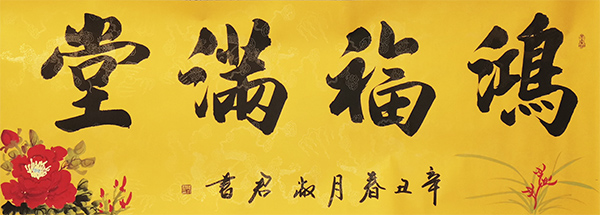 鸿福满堂
辛丑春月淑君書